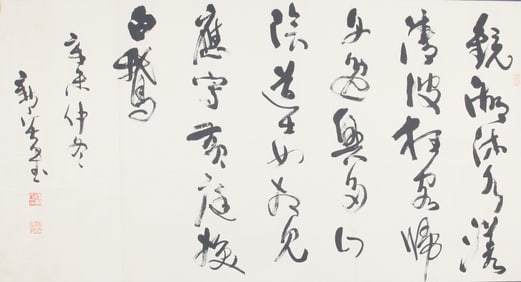 鏡湖流水漾
清波狂客歸
舟逸興多山
陰道士如相見
應寫黃庭換
白鵝
辛未仲冬